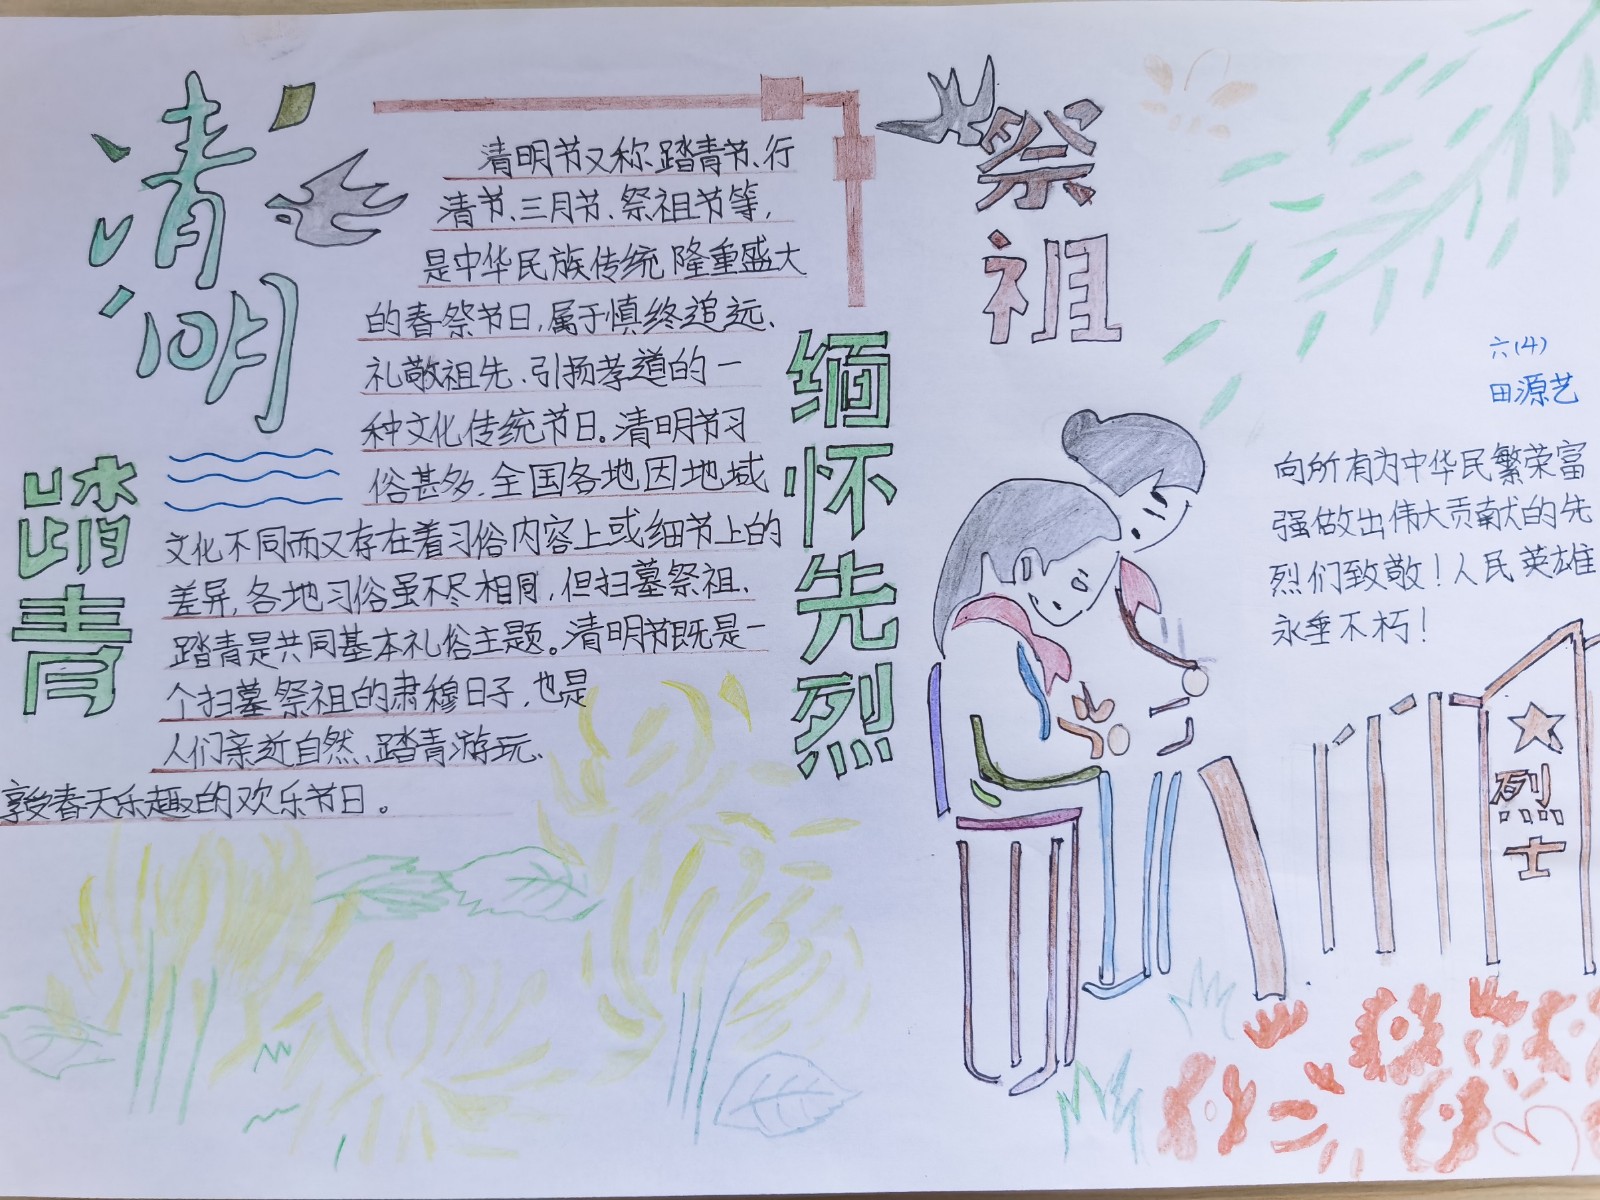 清明
踏青
清明节又称踏青节、行
清节、三月节、祭祖节等，
是中华民族传统隆重盛大
的春祭节日，属于慎终追远、
礼敬祖先、引扬孝道的一
种文化传统节日。清明节习
俗甚多，全国各地因地域
文化不同而又存在着习俗内容上或细节上的
差异，各地习俗虽不尽相同，但扫墓祭祖、
踏青是共同基本礼俗主题。清明节既是一
个扫墓祭祖的肃穆日子，也是
人们亲近自然、踏青游玩、
享受春天乐趣的欢乐节日。
缅怀先烈
祭祖
六(4)
田源艺
向所有为中华民繁荣富
强做出伟大贡献的先
烈们致敬！人民英雄
永垂不朽！
烈士